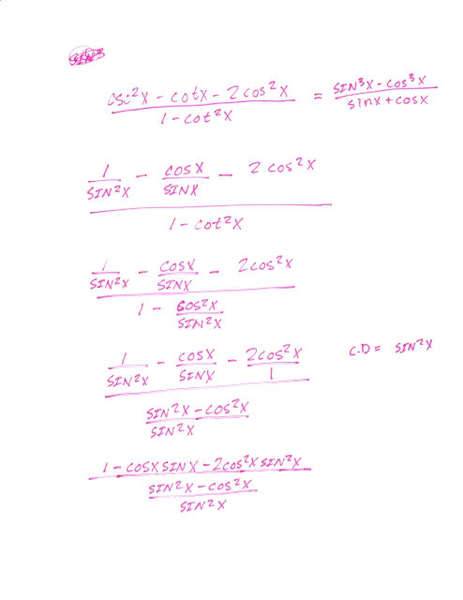 csc²x - cotx - 2cos²x / 1 - cot²x = SIN³x - cos³x / sinx + cosx
1 / SIN²x - cosx / SINX - 2cos²x
1 - cot²x
1 / SIN²x - cosx / SINX - 2cos²x
1 - cos²x / SIN²x
1 / SIN²x - cosx / SINX - 2cos²x / 1 C.D = SIN²x
SIN²x - cos²x / SIN²x
1 - cosx SINX - 2cos²x SIN²x
SIN²x - cos²x / SIN²x